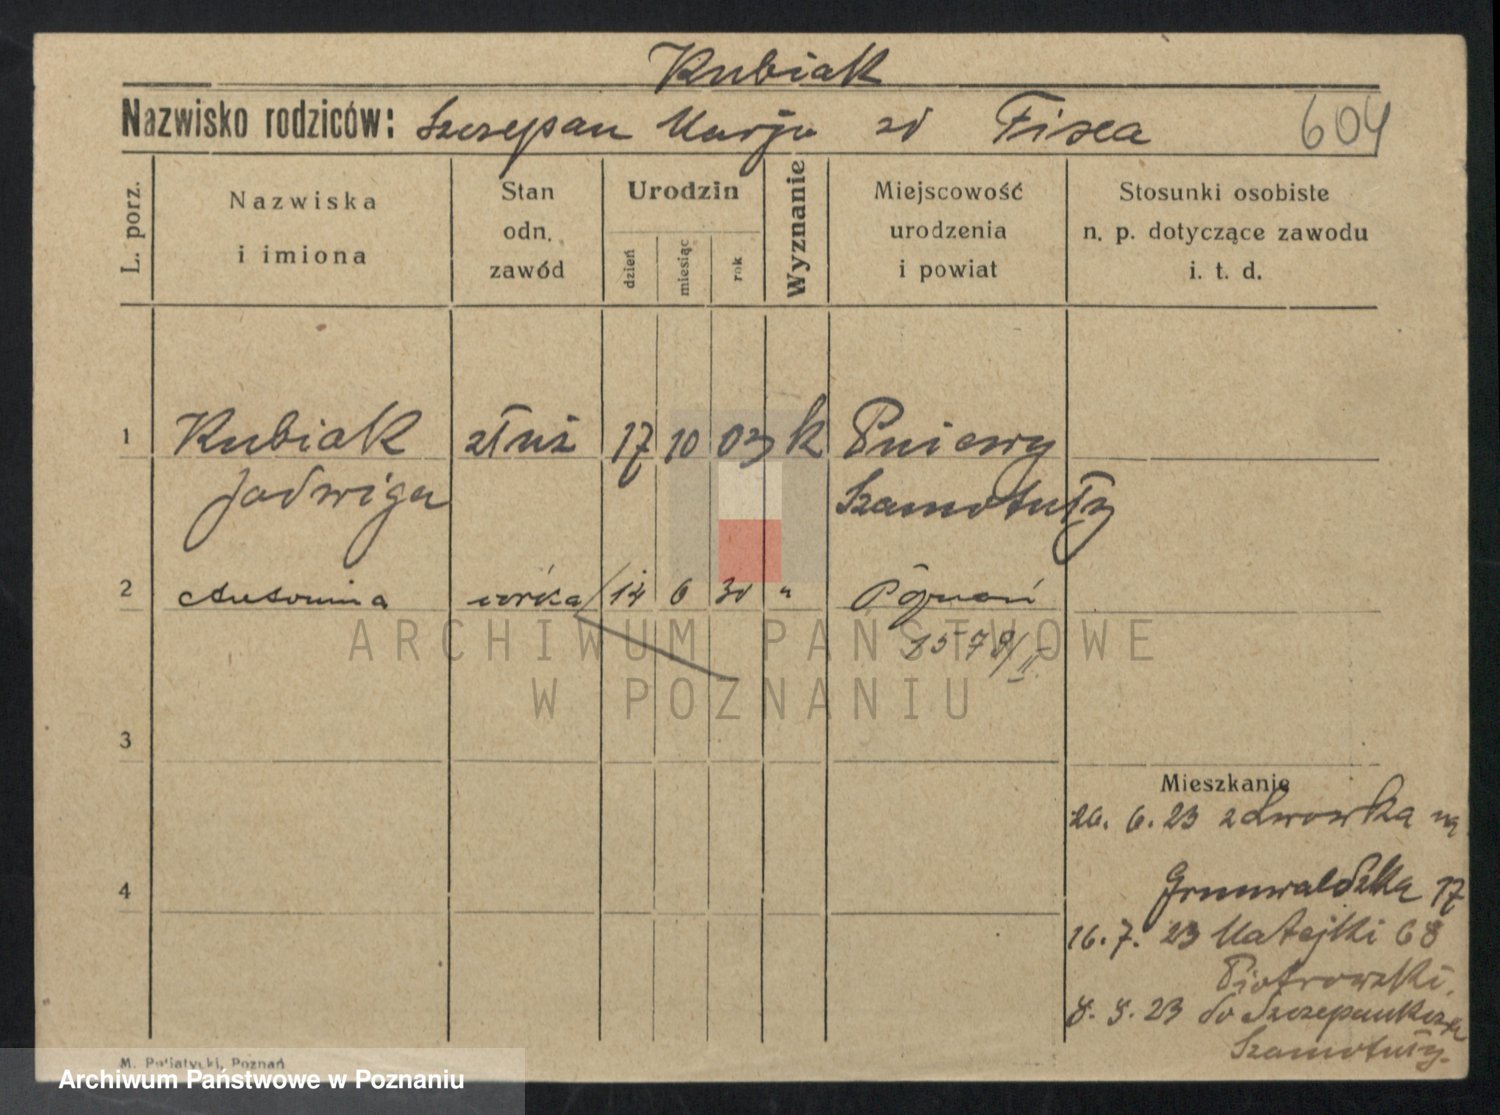 Kubiak
Nazwisko rodziców: Szczepan Marja zd Fisca
604
L. porz.
Nazwiska
i imiona
Stan
odn.
zawód
Urodzin
dzień
miesiąc
rok
Wyznanie
Miejscowość
urodzenia
i powiat
Stosunki osobiste
n. p. dotyczące zawodu
i. t. d.
1 Kubiak służ 17 10 03 k Pniewy
Jadwiga Szamotuły
2 Antonina córka 14 6 30 " Poznań
1578/II
ARCHIWUM PAŃSTWOWE
W POZNANIU
3
Mieszkanie
26. 6. 23 z Lwowka na
4
Grunwaldzka 17
16. 7. 23 Matejki 68
Piotrowski.
8. 9. 23 do
Szamotuły.
M. Putiatycki, Poznań
Archiwum Państwowe w Poznaniu